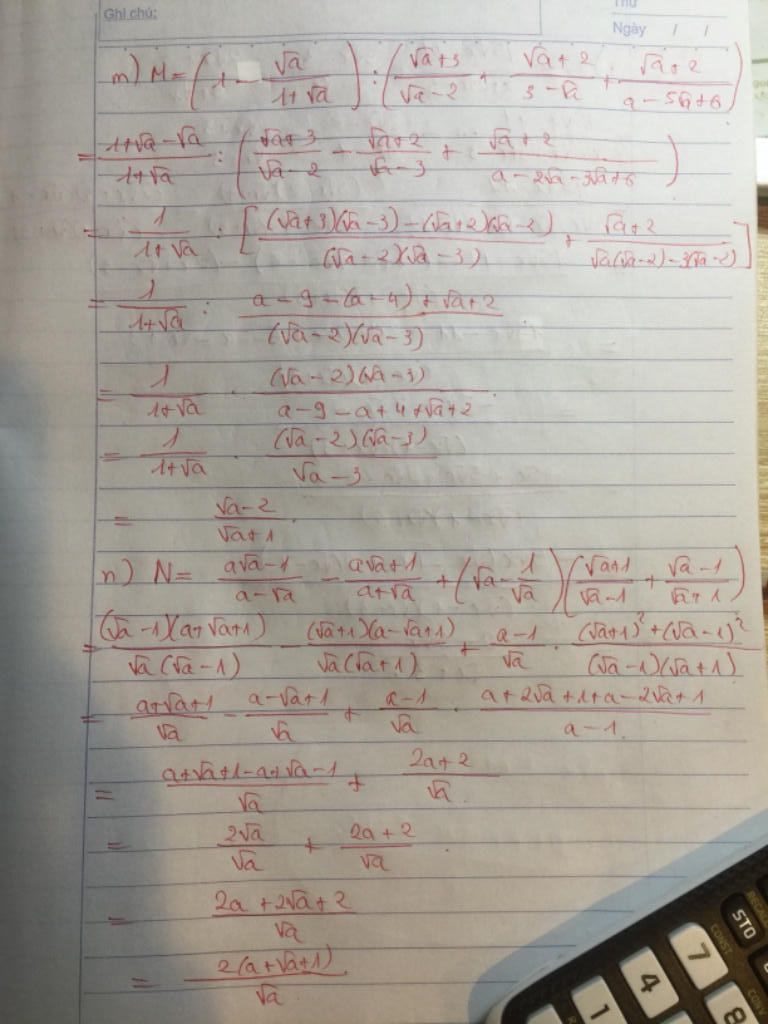 Ghi chú:
Thứ
Ngày / /
m) M = (1 - √a/(1+√a)) : ((√a+3)/(√a-2) + (√a+2)/(3-√a) + (√a+2)/(a-5√a+6))
= (1+√a-√a)/(1+√a) : ((√a+3)/(√a-2) - (√a+2)/(√a-3) + (√a+2)/(a-2√a-3√a+6))
= 1/(1+√a) : [((√a+3)(√a-3)-(√a+2)(√a-2))/((√a-2)(√a-3)) + (√a+2)/(√a(√a-2)-3(√a-2))]
= 1/(1+√a) : (a-9-(a-4)+√a+2)/((√a-2)(√a-3))
= 1/(1+√a) · ((√a-2)(√a-3))/(a-9-a+4+√a+2)
= 1/(1+√a) · ((√a-2)(√a-3))/(√a-3)
= (√a-2)/(√a+1).
n) N = (a√a-1)/(a-√a) - (a√a+1)/(a+√a) + (√a - 1/√a)((√a+1)/(√a-1) + (√a-1)/(√a+1))
= ((√a-1)(a+√a+1))/(√a(√a-1)) - ((√a+1)(a-√a+1))/(√a(√a+1)) + (a-1)/√a · ((√a+1)²+(√a-1)²)/((√a-1)(√a+1))
= (a+√a+1)/√a - (a-√a+1)/√a + (a-1)/√a · (a+2√a+1+a-2√a+1)/(a-1)
= (a+√a+1-a+√a-1)/√a + (2a+2)/√a
= 2√a/√a + (2a+2)/√a
= (2a+2√a+2)/√a
= 2(a+√a+1)/√a
STO
CONST
CONV
7
4
8
1